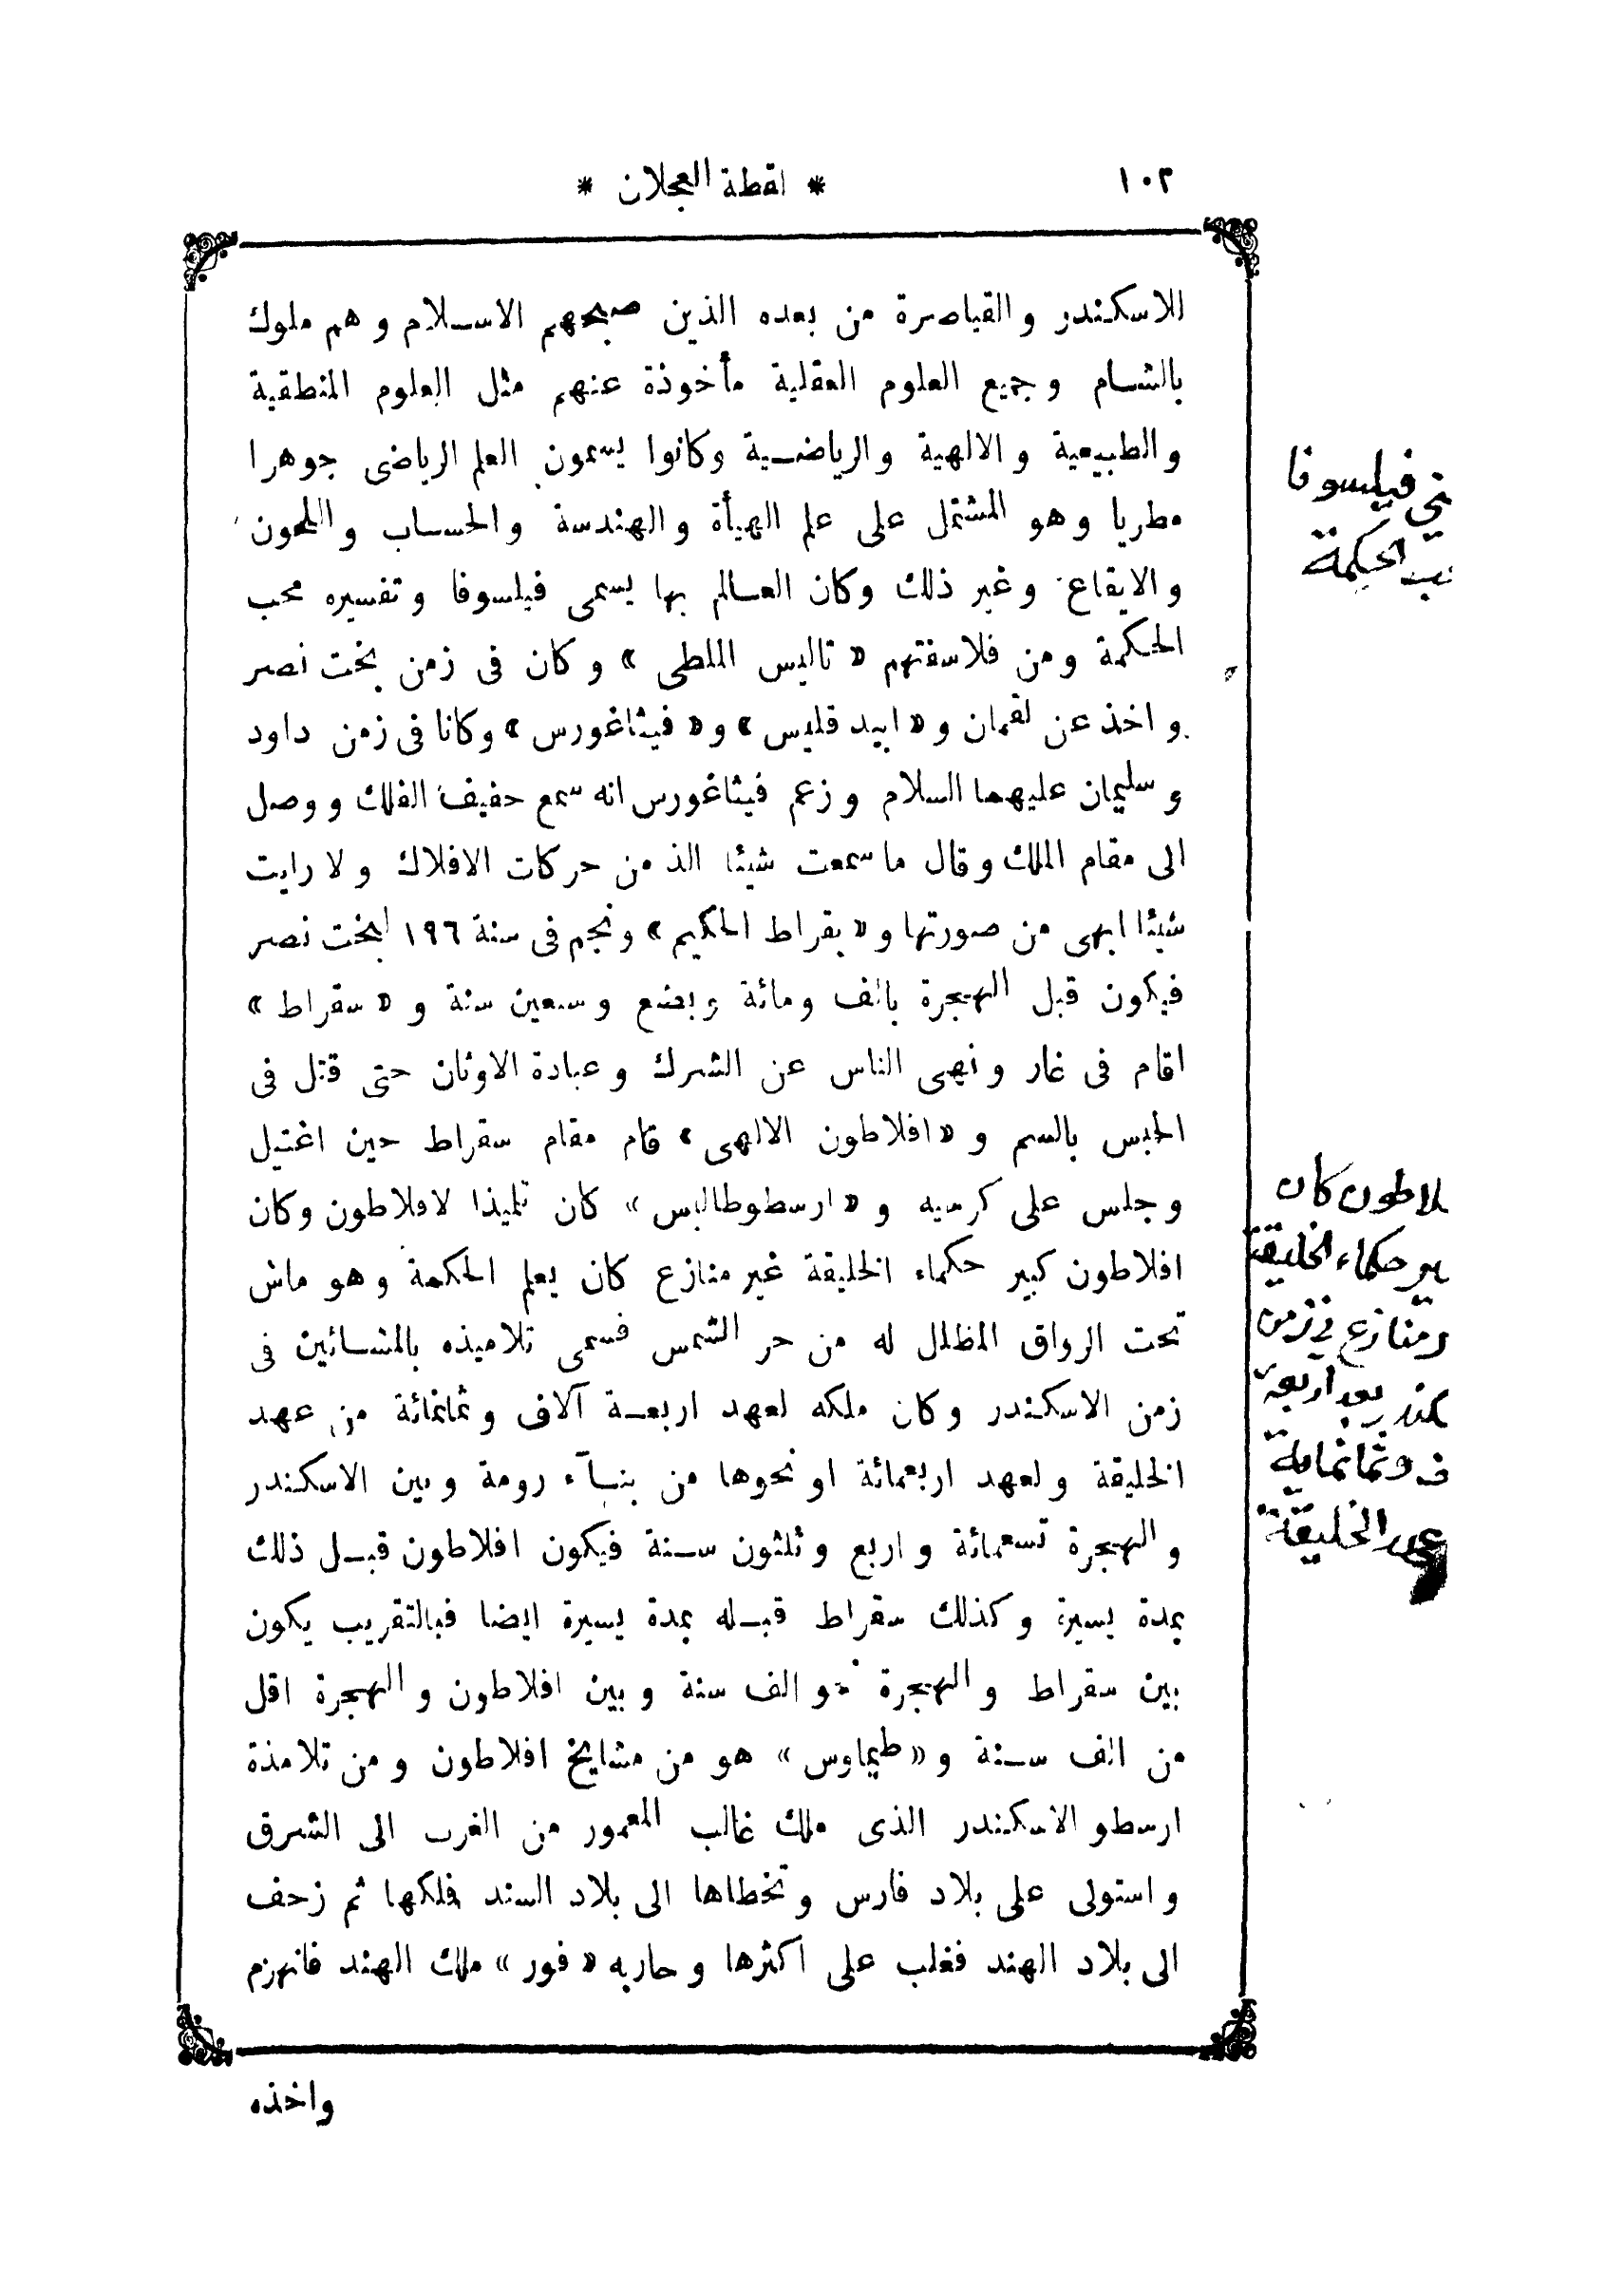 ١٠٢
* لقطة العجلان *
للاسكندر والقياصرة من بعده الذين صبحهم الاسلام وهم ملوك
بالشام وجميع العلوم العقلية مأخوذة عنهم مثل العلوم المنطقية
والطبيعية والالهية والرياضية وكانوا يسمون العلم الرياضى جوهرا
مطريا وهو المشتمل على علم الهيأة والهندسة والحساب واللحون
والايقاع وغير ذلك وكان العالم بها يسمى فيلسوفا وتفسيره محب
الحكمة ومن فلاسفتهم « تاليس الملطى » وكان فى زمن بخت نصر
واخذ عن لقمان و « ابيد قليس » و « فيثاغورس » وكانا فى زمن داود
وسليمان عليهما السلام وزعم فيثاغورس انه سمع حفيف الفلك ووصل
الى مقام الملك وقال ما سمعت شيئا الذ من حركات الافلاك ولا رايت
شيئا ابهى من صورتها و « بقراط الحكيم » ونجم فى سنة ١٩٦ لبخت نصر
فيكون قبل الهجرة بالف ومائة وبضع وسبعين سنة و « سقراط »
اقام فى غار ونهى الناس عن الشرك وعبادة الاوثان حتى قتل فى
الحبس بالسم و « افلاطون الالهى » قام مقام سقراط حين اغتيل
وجلس على كرسيه و « ارسطوطاليس » كان تلميذا لافلاطون وكان
افلاطون كبير حكماء الخليقة غير منازع كان يعلم الحكمة وهو ماش
تحت الرواق المظلل له من حر الشمس فسمى تلاميذه بالمشائين فى
زمن الاسكندر وكان ملكه لعهد اربعة آلاف وثمانمائة من عهد
الخليقة ولعهد اربعمائة او نحوها من بنآء رومة وبين الاسكندر
والهجرة تسعمائة واربع وثلثون سنة فيكون افلاطون قبل ذلك
بمدة يسيرة وكذلك سقراط قبله بمدة يسيرة ايضا فبالتقريب يكون
بين سقراط والهجرة نحو الف سنة وبين افلاطون والهجرة اقل
من الف سنة و « طيماوس » هو من مشايخ افلاطون ومن تلامذة
ارسطو الاسكندر الذى ملك غالب المعمور من الغرب الى الشرق
واستولى على بلاد فارس وتخطاها الى بلاد السند فملكها ثم زحف
الى بلاد الهند فغلب على اكثرها وحاربه « فور » ملك الهند فانهزم
واخذه
فيلسوفا
الحكمة
لاطون كان
حكماء الخليقة
منازع في زمن
بعد اربعة
وثمانماية
الخليقة